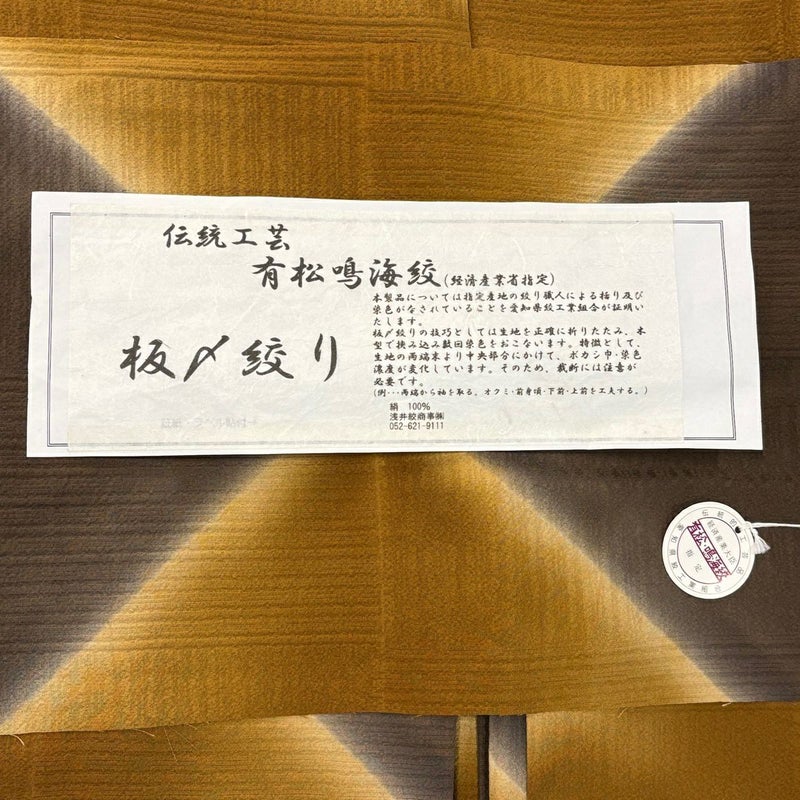 伝統工芸
有松鳴海絞(経済産業省指定)
本製品については指定産地の絞り職人による括り及び
染色がなされていることを愛知県絞工業組合が証明い
たします。
板〆絞りの技巧としては生地を正確に折りたたみ、木
型で挟み込み数回染色をおこないます。特徴として、
生地の両端末より中央部分にかけて、ボカシ巾・染色
濃度が変化しています。そのため、裁断には注意が
必要です。
(例・・・両端から袖を取る。オクミ・前身頃・下前・上前を工夫する。)
板〆絞り
絹 100%
浅井絞商事㈱
052-621-9111
証紙・ラベル貼付
経済産業大臣
有松・鳴海絞
指定